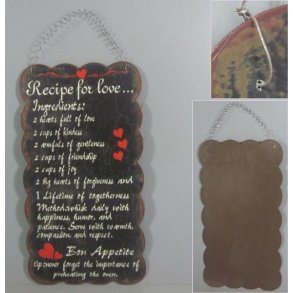 Recipe for love...
Ingredients:
2 hearts full of love
2 cups of kindness
2 armfuls of gentleness
2 cups of friendship
2 cups of joy
2 Big hearts of forgiveness and
1 Lifetime of togetherness
Method:whisk daily with
happiness, humor, and
patience. Serve with warmth,
compassion, and respect.
Bon Appetite
tip:never forget the importance of
preheating the oven.